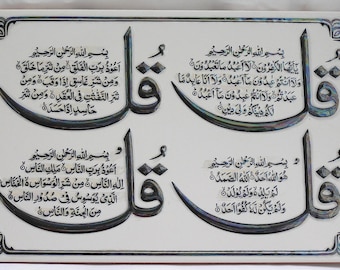 قُل
بِسْمِ اللهِ الرَّحْمٰنِ الرَّحِيمِ
يٰأَيُّهَا الْكٰفِرُونَ لَا أَعْبُدُ مَا تَعْبُدُونَ
وَلَا أَنْتُمْ عٰبِدُونَ مَا أَعْبُدُ وَلَا أَنَا عَابِدٌ مَا
عَبَدْتُمْ وَلَا أَنْتُمْ عٰبِدُونَ مَا أَعْبُدُ
لَكُمْ دِينُكُمْ وَلِيَ دِينِ
قُل
بِسْمِ اللهِ الرَّحْمٰنِ الرَّحِيمِ
أَعُوذُ بِرَبِّ الْفَلَقِ مِنْ شَرِّ مَا خَلَقَ
وَمِنْ شَرِّ غَاسِقٍ إِذَا وَقَبَ وَمِنْ
شَرِّ النَّفّٰثٰتِ فِي الْعُقَدِ وَمِنْ شَرِّ
حَاسِدٍ إِذَا حَسَدَ
قُل
بِسْمِ اللهِ الرَّحْمٰنِ الرَّحِيمِ
هُوَ اللهُ أَحَدٌ اللهُ الصَّمَدُ
لَمْ يَلِدْ وَلَمْ يُولَدْ
وَلَمْ يَكُنْ لَهُ كُفُوًا أَحَدٌ
قُل
بِسْمِ اللهِ الرَّحْمٰنِ الرَّحِيمِ
أَعُوذُ بِرَبِّ النَّاسِ مَلِكِ النَّاسِ
إِلٰهِ النَّاسِ مِنْ شَرِّ الْوَسْوَاسِ الْخَنَّاسِ
الَّذِي يُوَسْوِسُ فِي صُدُورِ النَّاسِ
مِنَ الْجِنَّةِ وَالنَّاسِ